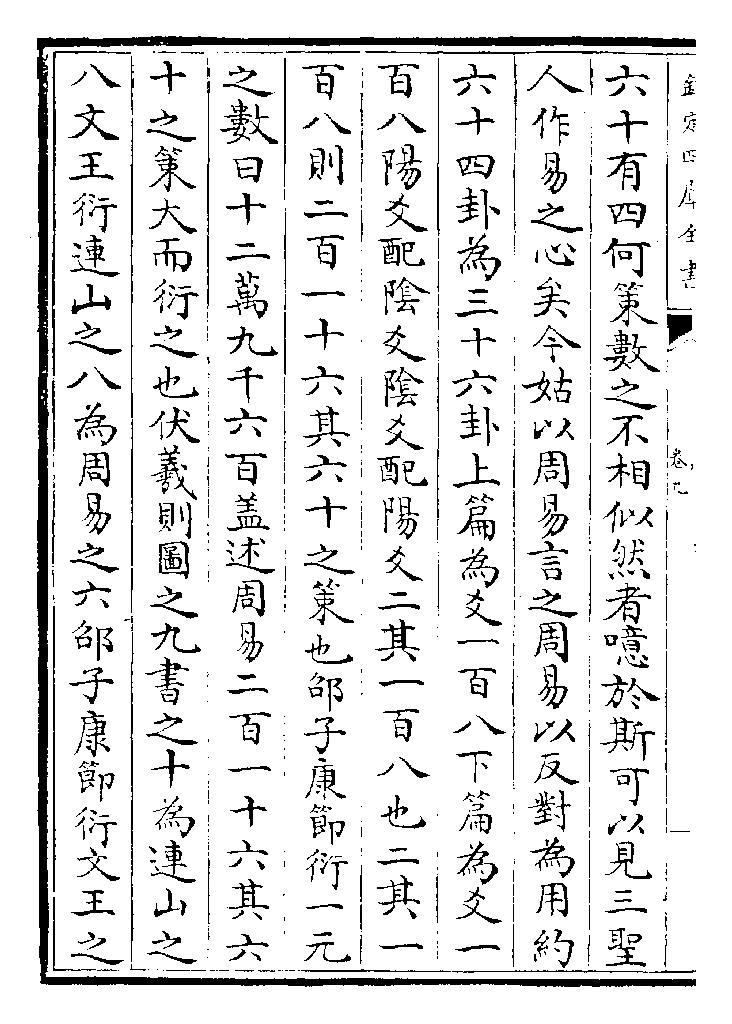 欽定四庫全書
卷九
六十有四何策數之不相似然者噫於斯可以見三聖
人作易之心矣今姑以周易言之周易以反對為用約
六十四卦為三十六卦上篇為爻一百八下篇為爻一
百八陽爻配陰爻陰爻配陽爻二其一百八也二其一
百八則二百一十六其六十之策也邵子康節衍一元
之數曰十二萬九千六百盖述周易二百一十六其六
十之策大而衍之也伏羲則圖之九書之十為連山之
八文王衍連山之八為周易之六邵子康節衍文王之